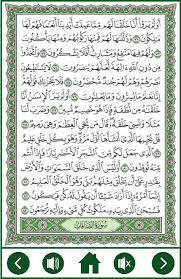 أَوَلَمْ يَرَوْا۟ أَنَّا خَلَقْنَا لَهُم مِّمَّا عَمِلَتْ أَيْدِينَآ أَنْعَٰمًا فَهُمْ لَهَا
مَٰلِكُونَ ٧١ وَذَلَّلْنَٰهَا لَهُمْ فَمِنْهَا رَكُوبُهُمْ وَمِنْهَا يَأْكُلُونَ
٧٢ وَلَهُمْ فِيهَا مَنَٰفِعُ وَمَشَارِبُ أَفَلَا يَشْكُرُونَ ٧٣ وَٱتَّخَذُوا۟
مِن دُونِ ٱللَّهِ ءَالِهَةً لَّعَلَّهُمْ يُنصَرُونَ ٧٤ لَا يَسْتَطِيعُونَ
نَصْرَهُمْ وَهُمْ لَهُمْ جُندٌ مُّحْضَرُونَ ٧٥ فَلَا يَحْزُنكَ قَوْلُهُمْ
إِنَّا نَعْلَمُ مَا يُسِرُّونَ وَمَا يُعْلِنُونَ ٧٦ أَوَلَمْ يَرَ ٱلْإِنسَٰنُ
أَنَّا خَلَقْنَٰهُ مِن نُّطْفَةٍ فَإِذَا هُوَ خَصِيمٌ مُّبِينٌ ٧٧ وَضَرَبَ لَنَا
مَثَلًا وَنَسِىَ خَلْقَهُۥ قَالَ مَن يُحْىِ ٱلْعِظَٰمَ وَهِىَ رَمِيمٌ ٧٨
قُلْ يُحْيِيهَا ٱلَّذِىٓ أَنشَأَهَآ أَوَّلَ مَرَّةٍ وَهُوَ بِكُلِّ خَلْقٍ عَلِيمٌ
٧٩ ٱلَّذِى جَعَلَ لَكُم مِّنَ ٱلشَّجَرِ ٱلْأَخْضَرِ نَارًا فَإِذَآ أَنتُم
مِّنْهُ تُوقِدُونَ ٨٠ أَوَلَيْسَ ٱلَّذِى خَلَقَ ٱلسَّمَٰوَٰتِ وَٱلْأَرْضَ
بِقَٰدِرٍ عَلَىٰٓ أَن يَخْلُقَ مِثْلَهُم بَلَىٰ وَهُوَ ٱلْخَلَّٰقُ ٱلْعَلِيمُ
٨١ إِنَّمَآ أَمْرُهُۥٓ إِذَآ أَرَادَ شَيْـًٔا أَن يَقُولَ لَهُۥ كُن فَيَكُونُ ٨٢
فَسُبْحَٰنَ ٱلَّذِى بِيَدِهِۦ مَلَكُوتُ كُلِّ شَىْءٍ وَإِلَيْهِ تُرْجَعُونَ ٨٣
سُورَةُ الصَّافَّاتِ